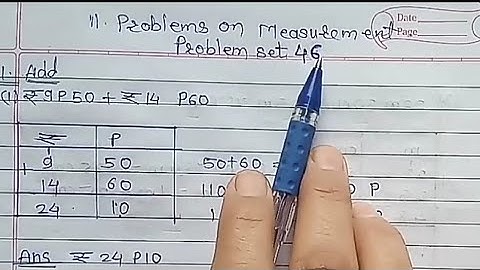 11. Problems on Measurement
Date
Page
Problem set 46
1. Add
(1) ₹ 9 P 50 + ₹ 14 P60
₹ P
9 50 50+60 =
1 14 60 110 0 P
24 10 1
Ans ₹ 24 P10